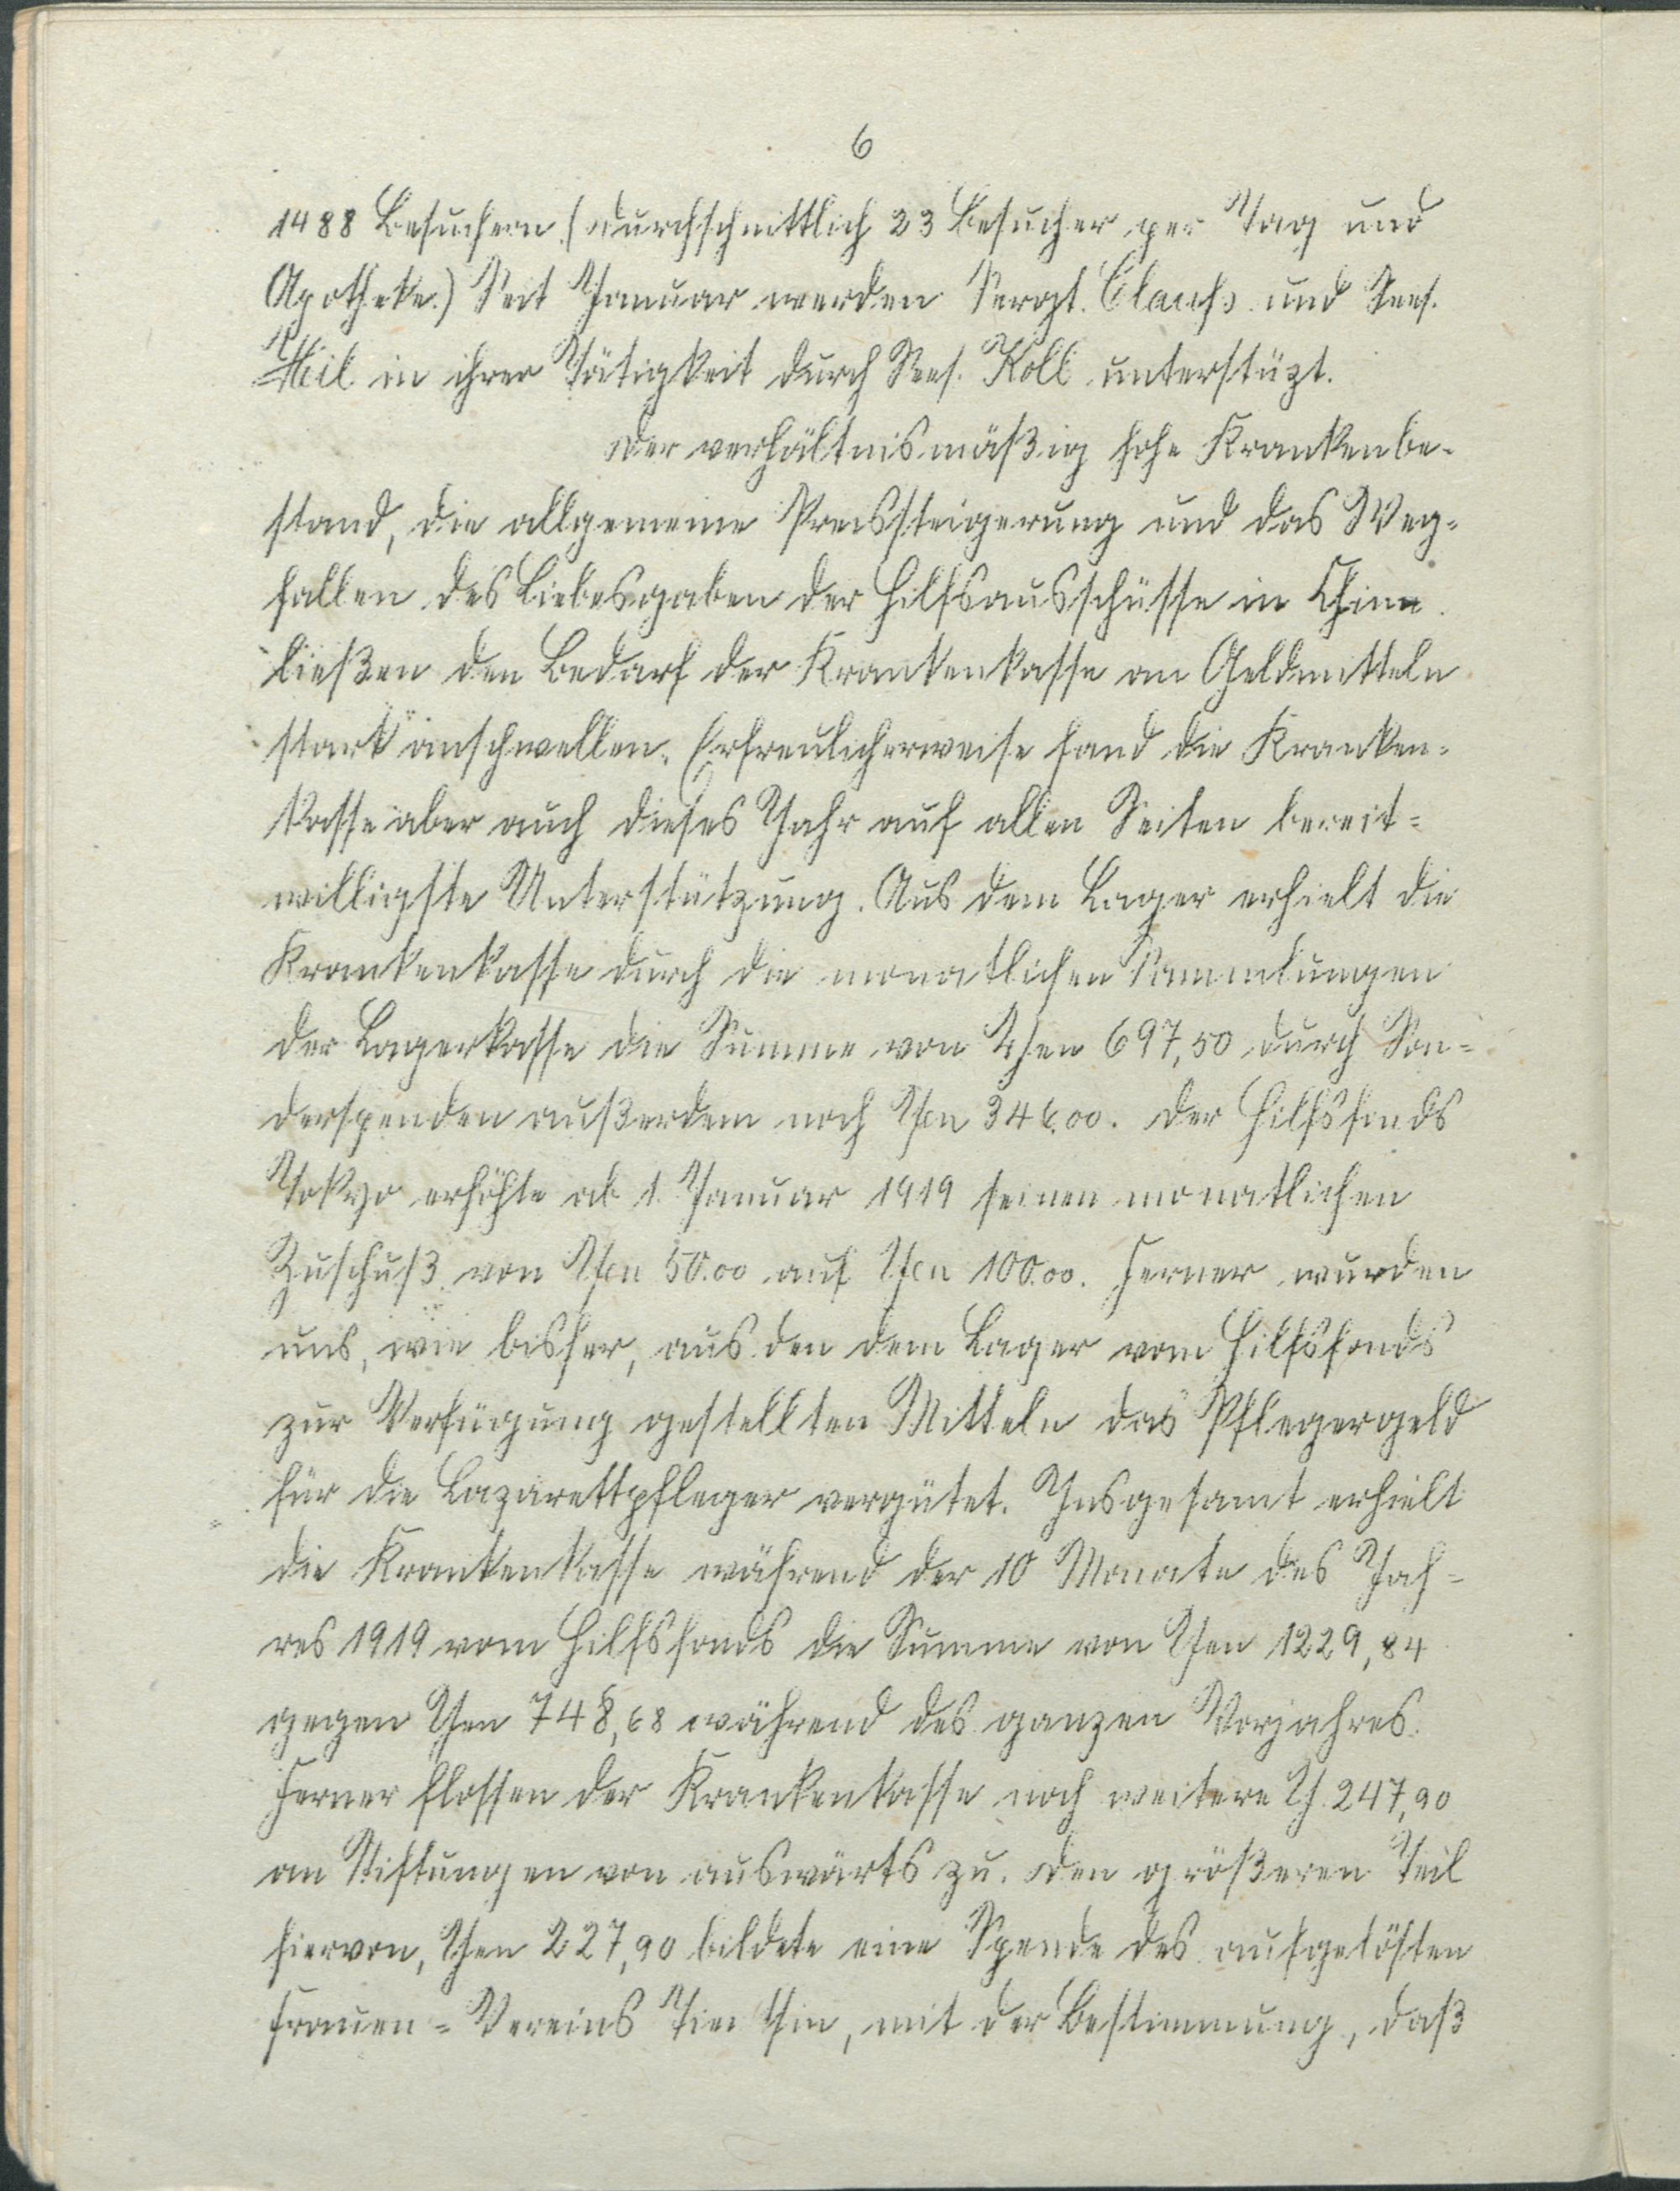 6
1488 Besuchern (durchschnittlich 23 Besucher per Tag und
Apotheke.) Seit Januar werden Sergt. Clauss und Sees.
Heil in ihrer Tätigkeit durch Sees. Koll unterstüzt.
Der verhältnismäßig hohe Krankenbe-
stand, die allgemeine Preissteigerung und das Weg-
fallen des Liebesgaben der Hilfsausschüsse in China
ließen den Bedarf der Krankenkasse an Geldmitteln
stark anschwellen. Erfreulicherweise fand die Kranken-
kasse aber auch dieses Jahr auf allen Seiten bereit-
willigste Unterstützung. Aus dem Lager erhielt die
Krankenkasse durch die monatlichen Sammlungen
der Lagerkasse die Summe von Yen 697,50 durch Son-
derspenden außerdem noch Yen 346.00. Der Hilfsfonds
Tokyo erhöhte ab 1. Januar 1919 seinen monatlichen
Zuschuß von Yen 50.00 auf Yen 100.00. Ferner wurden
uns, wie bisher, aus den dem Lager vom Hilfsfonds
zur Verfügung gestellten Mitteln das Pflegergeld
für die Lazarettpfleger vergütet. Insgesamt erhielt
die Krankenkasse während der 10 Monate des Jah-
res 1919 vom Hilfsfonds die Summe von Yen 1229,84
gegen Yen 748,68 während des ganzen Vorjahres.
Ferner flossen der Krankenkasse noch weitere Y. 247,90
an Stiftungen von auswärts zu. Den größeren Teil
hiervon, Yen 227,90 bildete eine Spende des aufgelösten
Frauen-Vereins Tientsin, mit der Bestimmung, daß